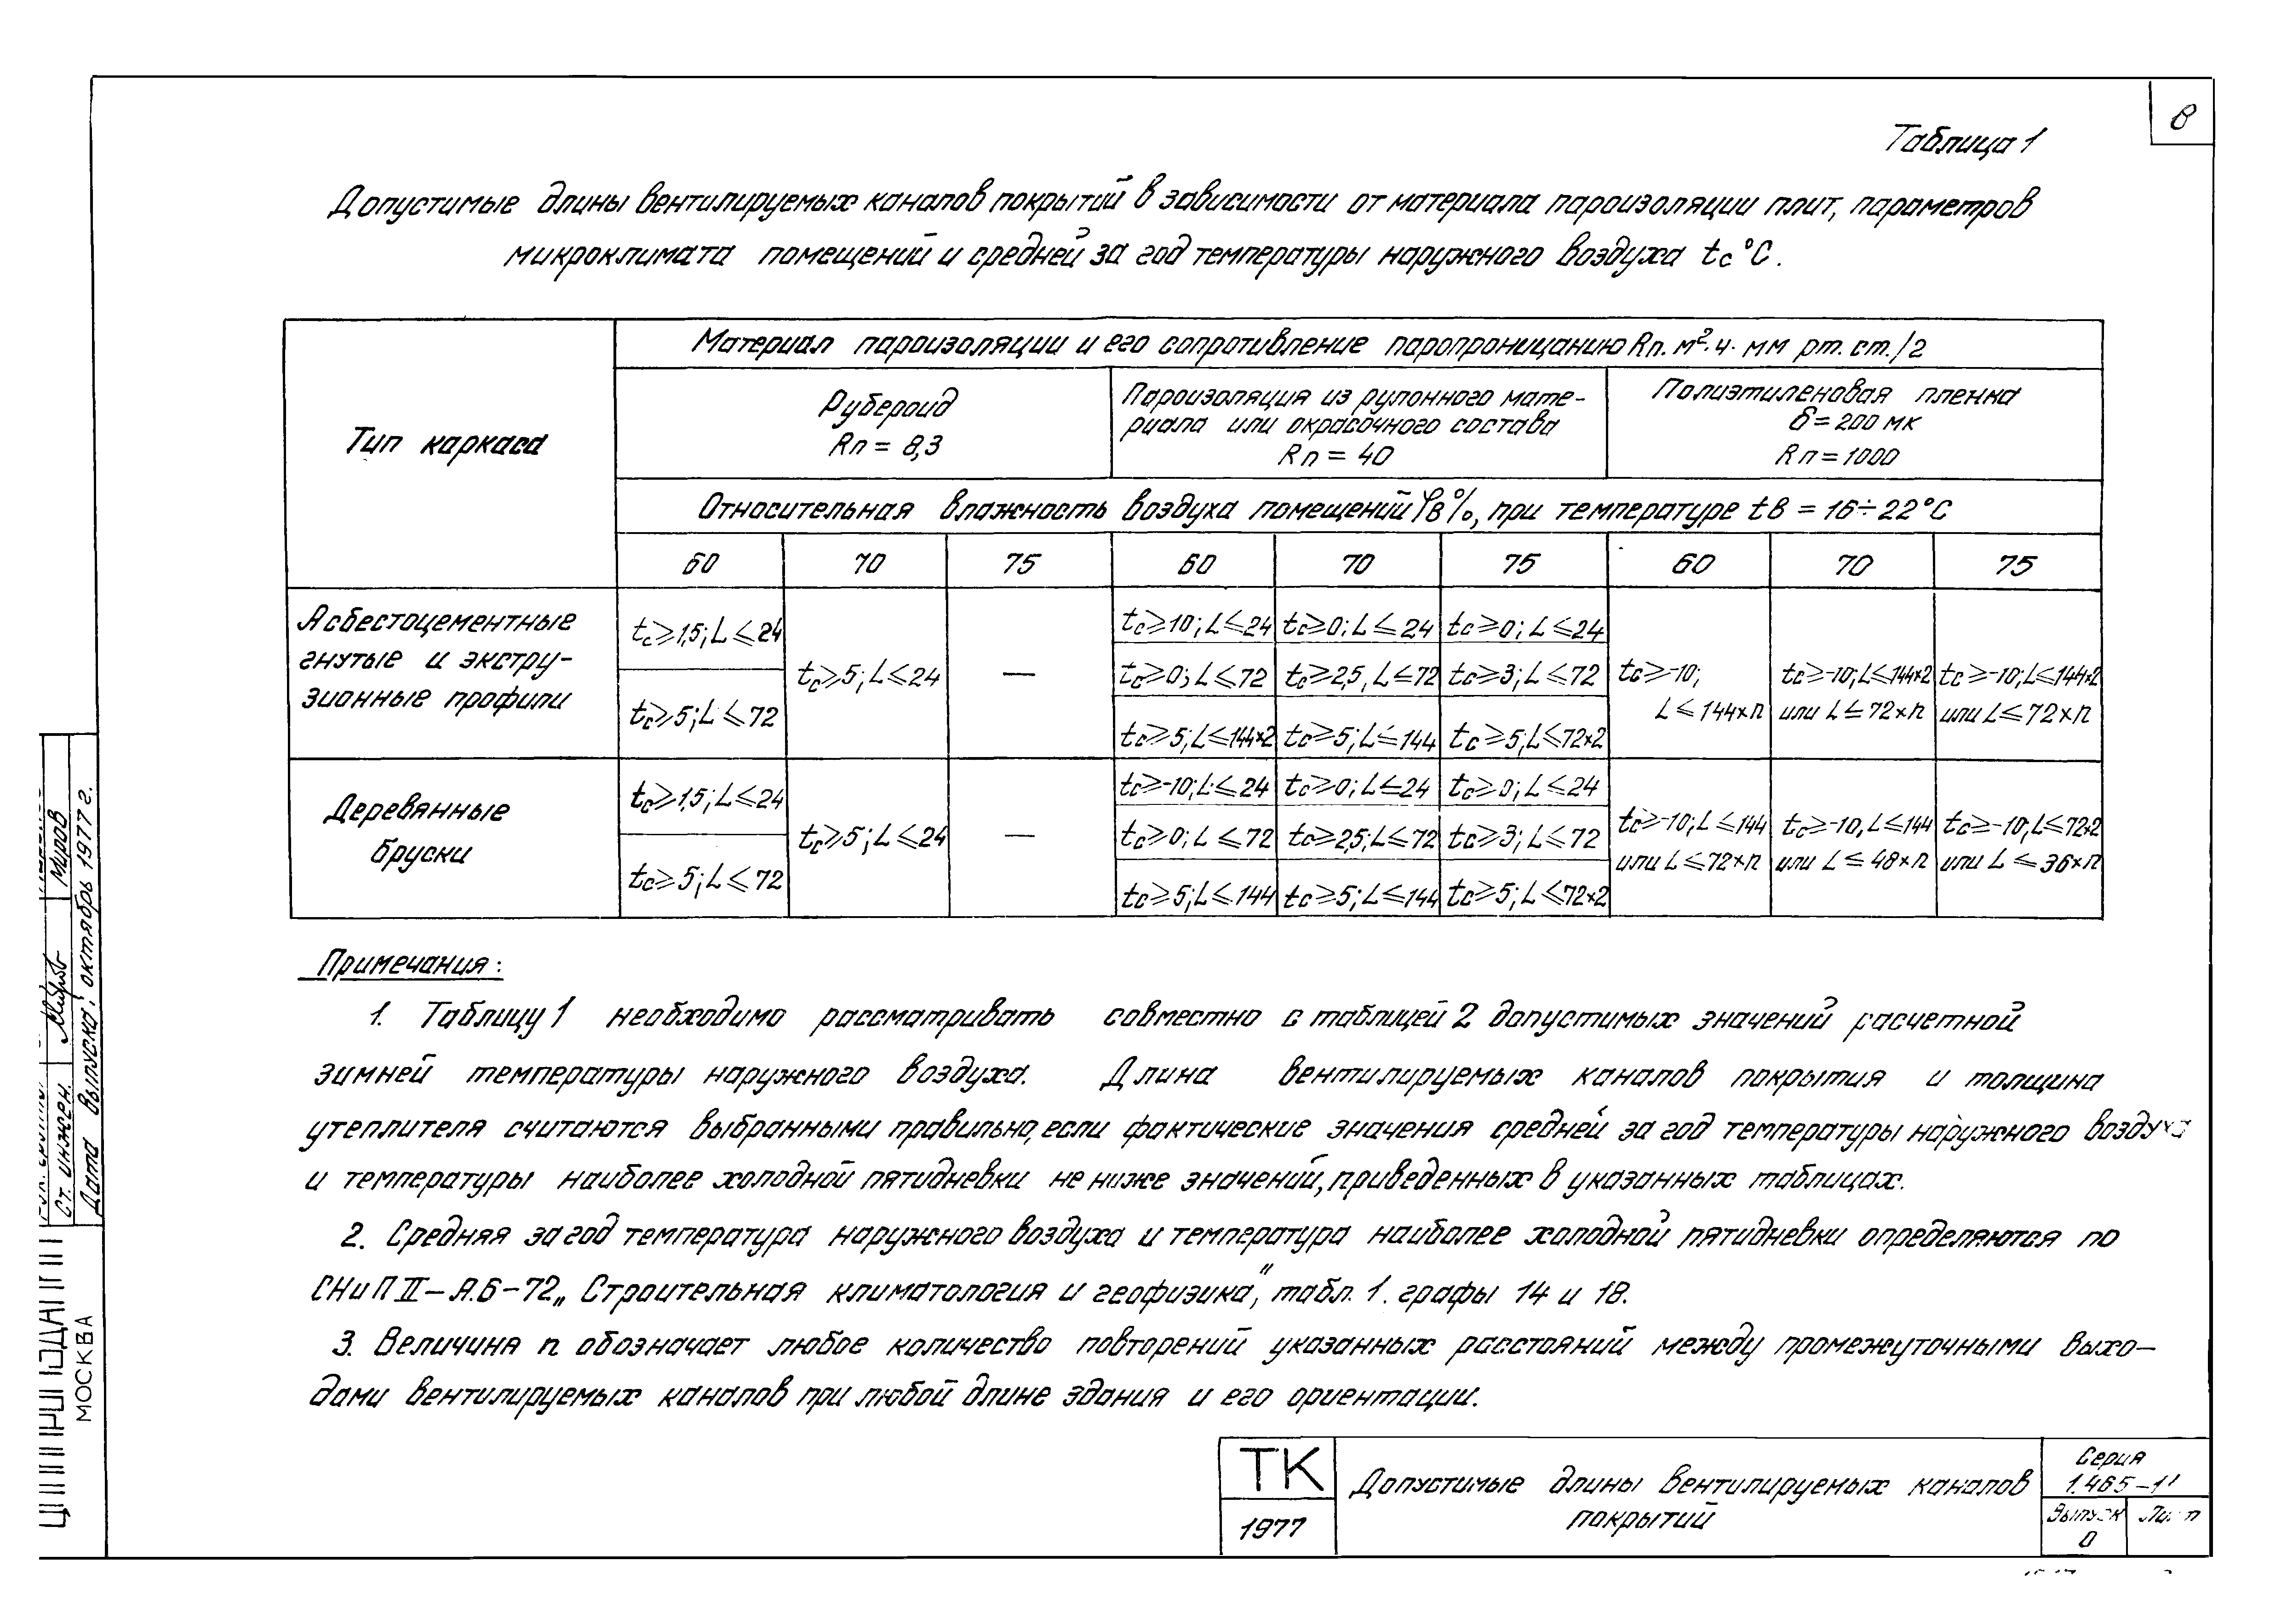 8
Таблица 1
Допустимые длины вентилируемых каналов покрытий в зависимости от материала пароизоляции плит, параметров
микроклимата помещений и средней за год температуры наружного воздуха tc °C.
Тип каркаса
Материал пароизоляции и его сопротивление паропроницанию Rп. м²·ч· мм рт. ст./г
Рубероид
Rп = 8,3
Пароизоляция из рулонного мате-
риала или окрасочного состава
Rп = 40
Полиэтиленовая пленка
δ = 200 мк
Rп = 1000
Относительная влажность воздуха помещений φв%, при температуре tв = 16÷22°C
60 70 75 60 70 75 60 70 75
Асбестоцементные
гнутые и экстру-
зионные профили
tc⩾1,5; L⩽24
tc⩾5; L⩽72
tc⩾5; L⩽24
—
tc⩾10; L⩽24
tc⩾0; L⩽72
tc⩾5; L⩽144×2
tc⩾0; L⩽24
tc⩾2,5, L⩽72
tc⩾5; L⩽144
tc⩾0; L⩽24
tc⩾3; L⩽72
tc⩾5; L⩽72×2
tc⩾-10;
L⩽144×n
tc⩾-10; L⩽144×2
или L⩽72×n
tc⩾-10; L⩽144×2
или L⩽72×n
Деревянные
бруски
tc⩾1,5; L⩽24
tc⩾5; L⩽72
tc⩾5; L⩽24
—
tc⩾-10; L⩽24
tc⩾0; L⩽72
tc⩾5; L⩽144
tc⩾0; L⩽24
tc⩾2,5; L⩽72
tc⩾5; L⩽144
tc⩾0; L⩽24
tc⩾3; L⩽72
tc⩾5; L⩽72×2
tc⩾-10; L⩽144
или L⩽72×n
tc⩾-10, L⩽144
или L⩽48×n
tc⩾-10; L⩽72×2
или L⩽36×n
Примечания:
1. Таблицу 1 необходимо рассматривать совместно с таблицей 2 допустимых значений расчетной
зимней температуры наружного воздуха. Длина вентилируемых каналов покрытия и толщина
утеплителя считаются выбранными правильно, если фактические значения средней за год температуры наружного воздуха
и температуры наиболее холодной пятидневки не ниже значений, приведенных в указанных таблицах.
2. Средняя за год температура наружного воздуха и температура наиболее холодной пятидневки определяются по
СНиП II-А.6-72 „Строительная климатология и геофизика", табл. 1. графы 14 и 18.
3. Величина n обозначает любое количество повторений указанных расстояний между промежуточными выхо-
дами вентилируемых каналов при любой длине здания и его ориентации.
ТК
1977
Допустимые длины вентилируемых каналов
покрытий
Серия
1.465-11
Выпуск
0
Лист
Ст. инжен.
Миров
Дата выпуска: октябрь 1977 г.
МОСКВА